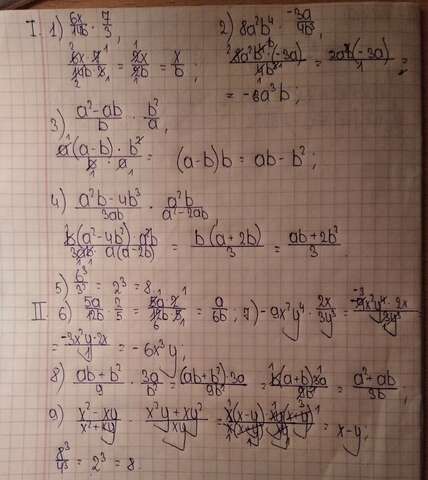 I. 1) 6x/14b · 7/3, 2) 8a²b⁴ · -3a/4b³;
6x·7/14b·3 = 2x/2b = x/b; 8a²b⁴·(-3a)/4b³ = 2a²b(-3a)/1 =
= -6a³b;
3) a²-ab/b · b²/a,
a(a-b)·b²/b·a = (a-b)b = ab-b²;
4) a²b-4b³/3ab · a²b/a²-2ab,
b(a²-4b²)·a²b/3ab·a(a-2b) = b(a+2b)/3 = ab+2b²/3.
5) 6³/3³ = 2³ = 8
II 6) 5a/12b · 2/5 = 5a·2/12b·5 = a/6b; 7) -9x²y⁴ · 2x/3y³ = -9x²y⁴·2x/3y³
= -3x²y·2x/1 = -6x³y;
8) ab+b²/9 · 3a/b² = (ab+b²)·3a/9b² = b(a+b)3a/9b² = a²+ab/3b;
9) x²-xy/x²+xy · x²y+xy²/xy = x(x-y)·xy(x+y)/x(x+y)·xy = x-y;
8³/4³ = 2³ = 8.